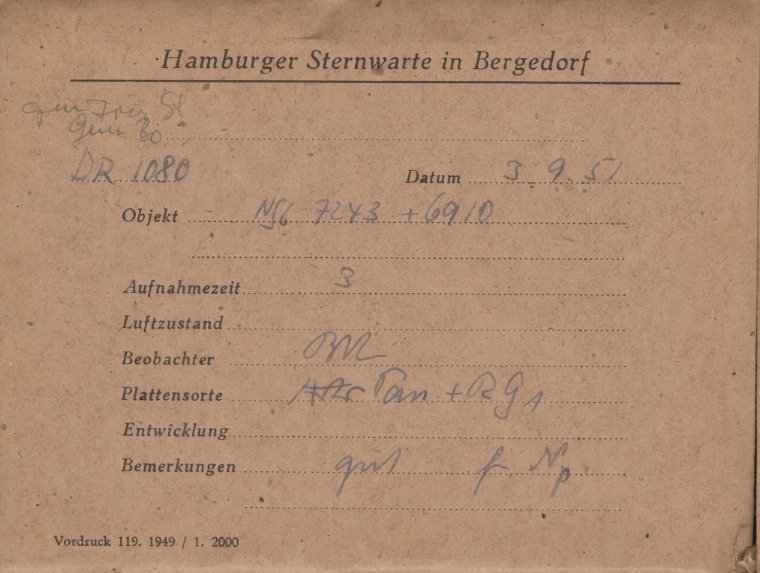 Hamburger Sternwarte in Bergedorf
DR 1080
Datum 3. 9. 51
Objekt NGC 7243 + 6910
Aufnahmezeit 3
Luftzustand
Beobachter
Plattensorte Pan + RG1
Entwicklung
Bemerkungen gut f. Np
Vordruck 119. 1949 / 1. 2000